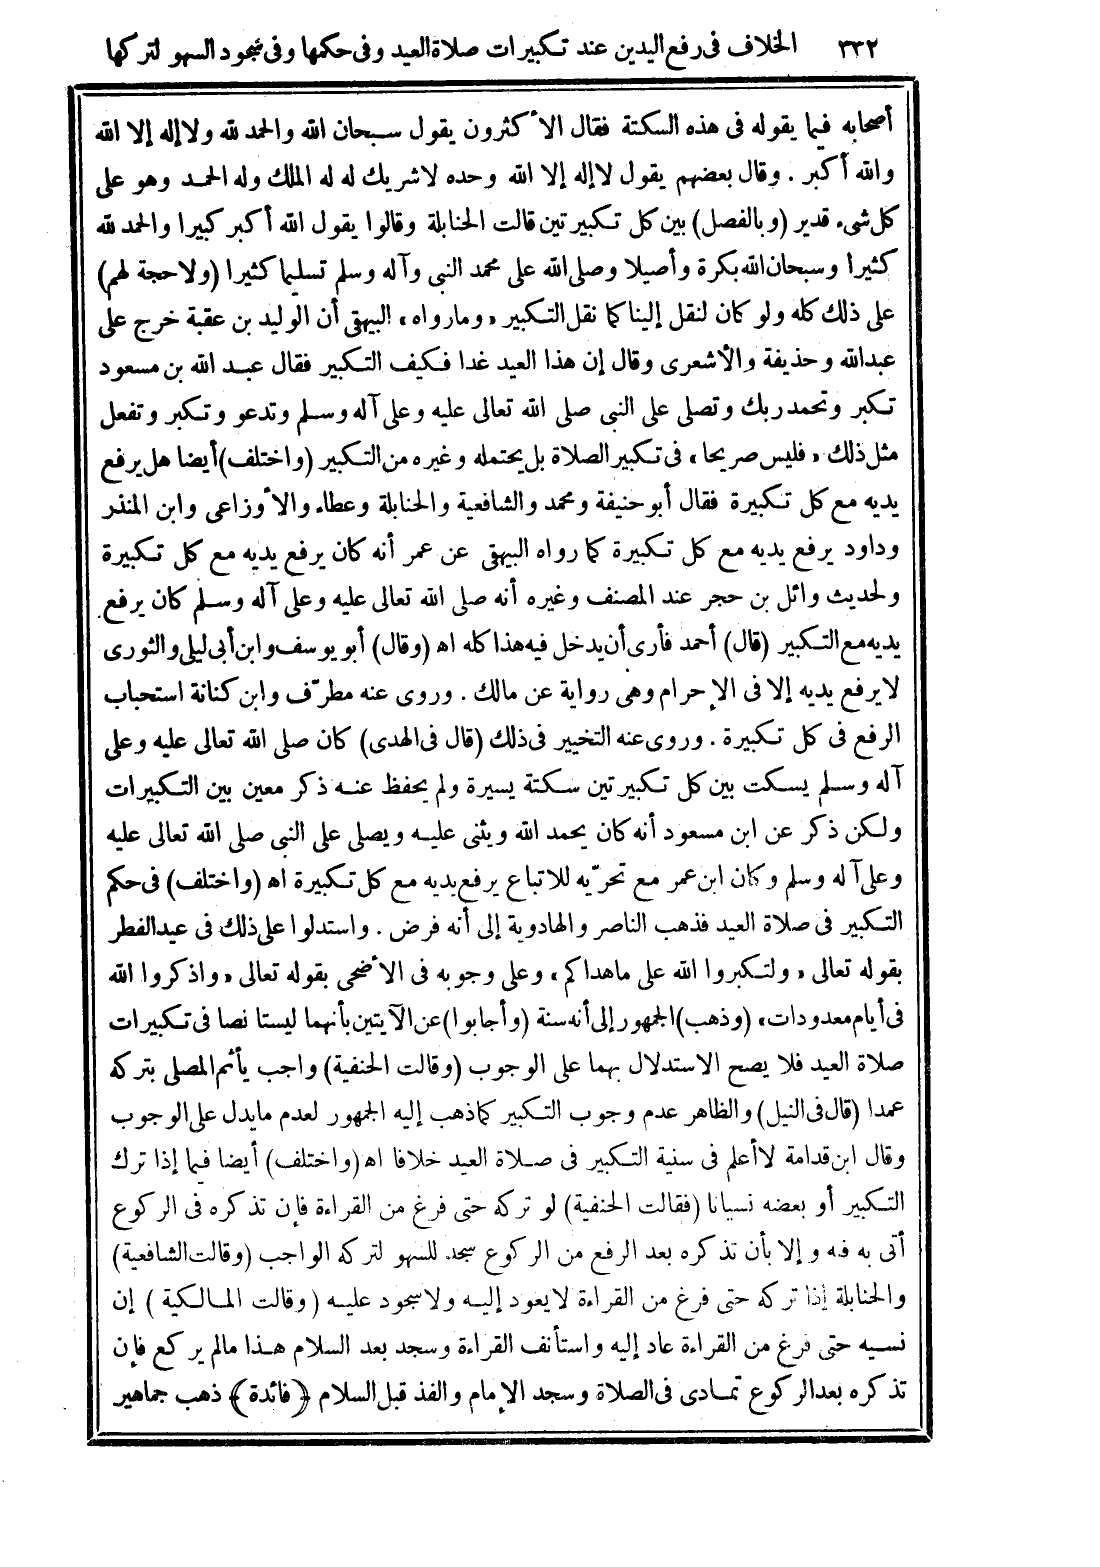 ٣٣٢ الخلاف فى رفع اليدين عند تكبيرات صلاة العيد وفى حكمها وفى سجود السهو لتركها
أصحابه فيما يقوله فى هذه السكتة فقال الأكثرون يقول سبحان الله والحمد لله ولا إله إلا الله
والله أكبر . وقال بعضهم يقول لا إله إلا الله وحده لاشريك له له الملك وله الحمد وهو على
كل شىء قدير (وبالفصل) بين كل تكبيرتين قالت الحنابلة وقالوا يقول الله أكبر كبيرا والحمد لله
كثيرا وسبحان الله بكرة وأصيلا وصلى الله على محمد النبى وآله وسلم تسليما كثيرا (ولاحجة لهم)
على ذلك كله ولو كان لنقل إلينا كما نقل التكبير «ومارواه» البيهقى أن الوليد بن عقبة خرج على
عبدالله وحذيفة والأشعرى وقال إن هذا العيد غدا فكيف التكبير فقال عبد الله بن مسعود
تكبر وتحمد ربك وتصلى على النبى صلى الله تعالى عليه وعلى آله وسلم وتدعو وتكبر وتفعل
مثل ذلك «فليس صريحا» فى تكبير الصلاة بل يحتمله وغيره من التكبير (واختلف) أيضا هل يرفع
يديه مع كل تكبيرة فقال أبو حنيفة ومحمد والشافعية والحنابلة وعطاء والأوزاعى وابن المنذر
وداود يرفع يديه مع كل تكبيرة كما رواه البيهقى عن عمر أنه كان يرفع يديه مع كل تكبيرة
ولحديث وائل بن حجر عند المصنف وغيره أنه صلى الله تعالى عليه وعلى آله وسلم كان يرفع
يديه مع التكبير (قال) أحمد فأرى أن يدخل فيه هذا كله اه (وقال) أبو يوسف وابن أبى ليلى والثورى
لا يرفع يديه إلا فى الإحرام وهى رواية عن مالك . وروى عنه مطرّف وابن كنانة استحباب
الرفع فى كل تكبيرة . وروى عنه التخيير فى ذلك (قال فى الهدى) كان صلى الله تعالى عليه وعلى
آله وسلم يسكت بين كل تكبيرتين سكتة يسيرة ولم يحفظ عنه ذكر معين بين التكبيرات
ولكن ذكر عن ابن مسعود أنه كان يحمد الله ويثنى عليه ويصلى على النبى صلى الله تعالى عليه
وعلى آله وسلم وكان ابن عمر مع تحرّيه للاتباع يرفع يديه مع كل تكبيرة اه (واختلف) فى حكم
التكبير فى صلاة العيد فذهب الناصر والهادوية إلى أنه فرض . واستدلوا على ذلك فى عيد الفطر
بقوله تعالى «ولتكبروا الله على ماهداكم» وعلى وجوبه فى الأضحى بقوله تعالى «واذكروا الله
فى أيام معدودات» (وذهب) الجمهور إلى أنه سنة (وأجابوا) عن الآيتين بأنهما ليستا نصا فى تكبيرات
صلاة العيد فلا يصح الاستدلال بهما على الوجوب (وقالت الحنفية) واجب يأثم المصلى بتركه
عمدا (قال فى النيل) والظاهر عدم وجوب التكبير كما ذهب إليه الجمهور لعدم مايدل على الوجوب
وقال ابن قدامة لا أعلم فى سنية التكبير فى صلاة العيد خلافا اه (واختلف) أيضا فيما إذا ترك
التكبير أو بعضه نسيانا (فقالت الحنفية) لو تركه حتى فرغ من القراءة فإن تذكره فى الركوع
أتى به فيه وإلا بأن تذكره بعد الرفع من الركوع سجد للسهو لتركه الواجب (وقالت الشافعية)
والحنابلة إذا تركه حتى فرغ من القراءة لا يعود إليه ولا سجود عليه (وقالت المالكية) إن
نسيه حتى فرغ من القراءة عاد إليه واستأنف القراءة وسجد بعد السلام هذا مالم يركع فإن
تذكره بعد الركوع تمادى فى الصلاة وسجد الإمام والفذ قبل السلام ﴿فائدة﴾ ذهب جماهير